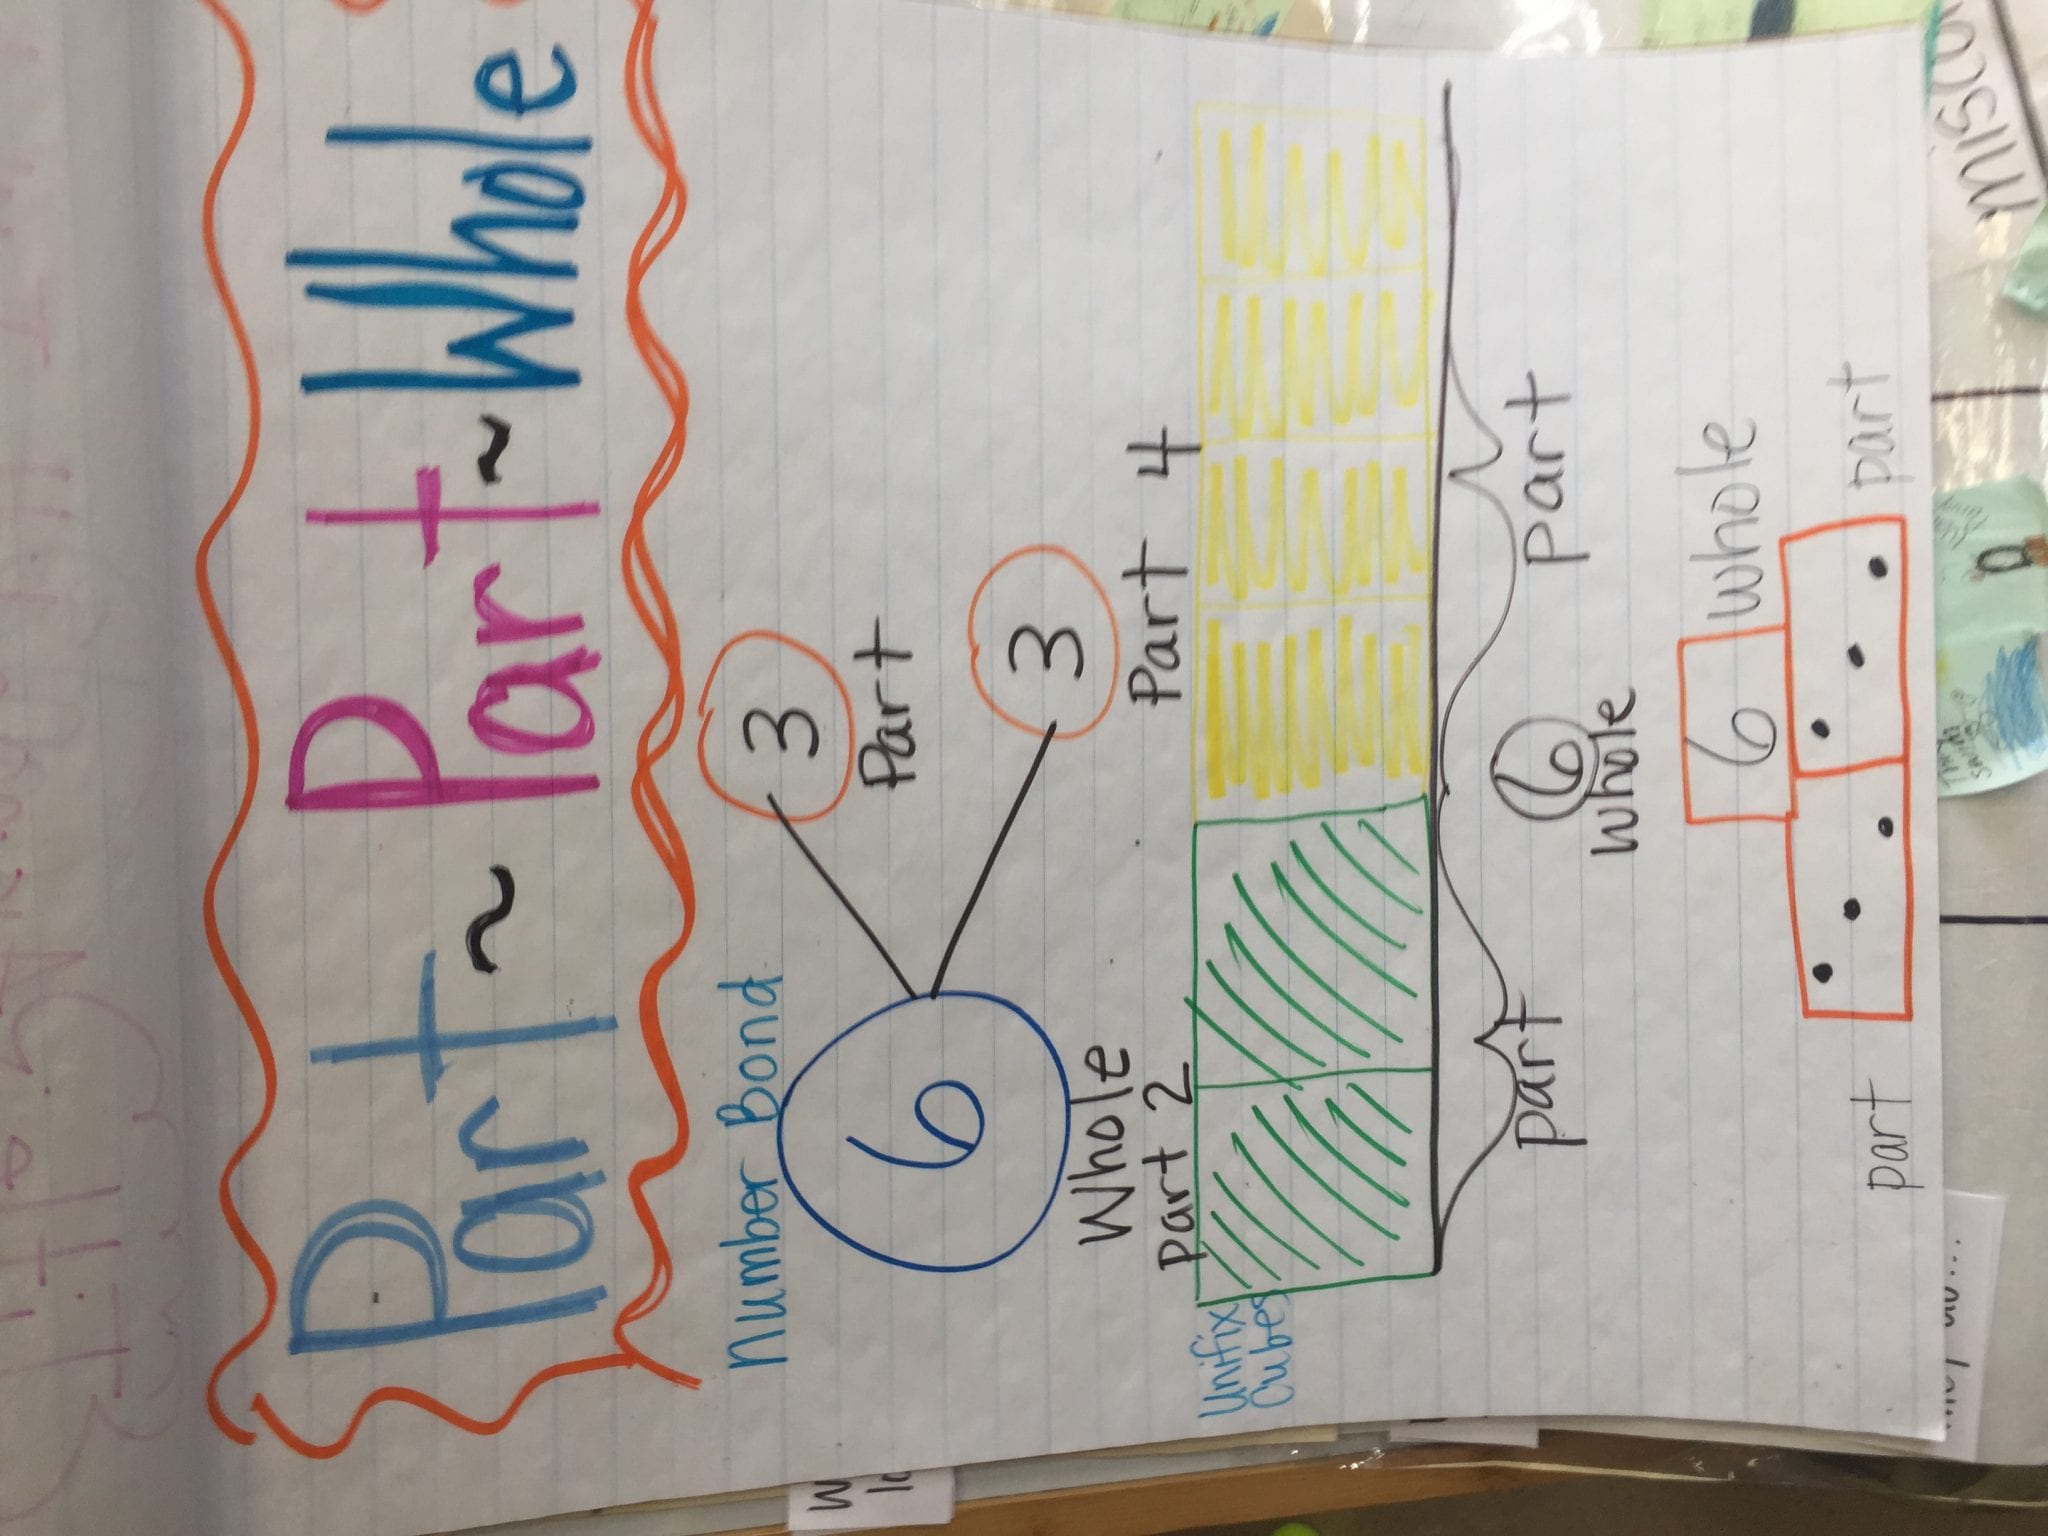 Part ~ Part ~ Whole
Number Bond
3
Part
6
3
Whole
Part 2
Part 4
Unifix
Cubes
part
part
6
whole
6
whole
part
part